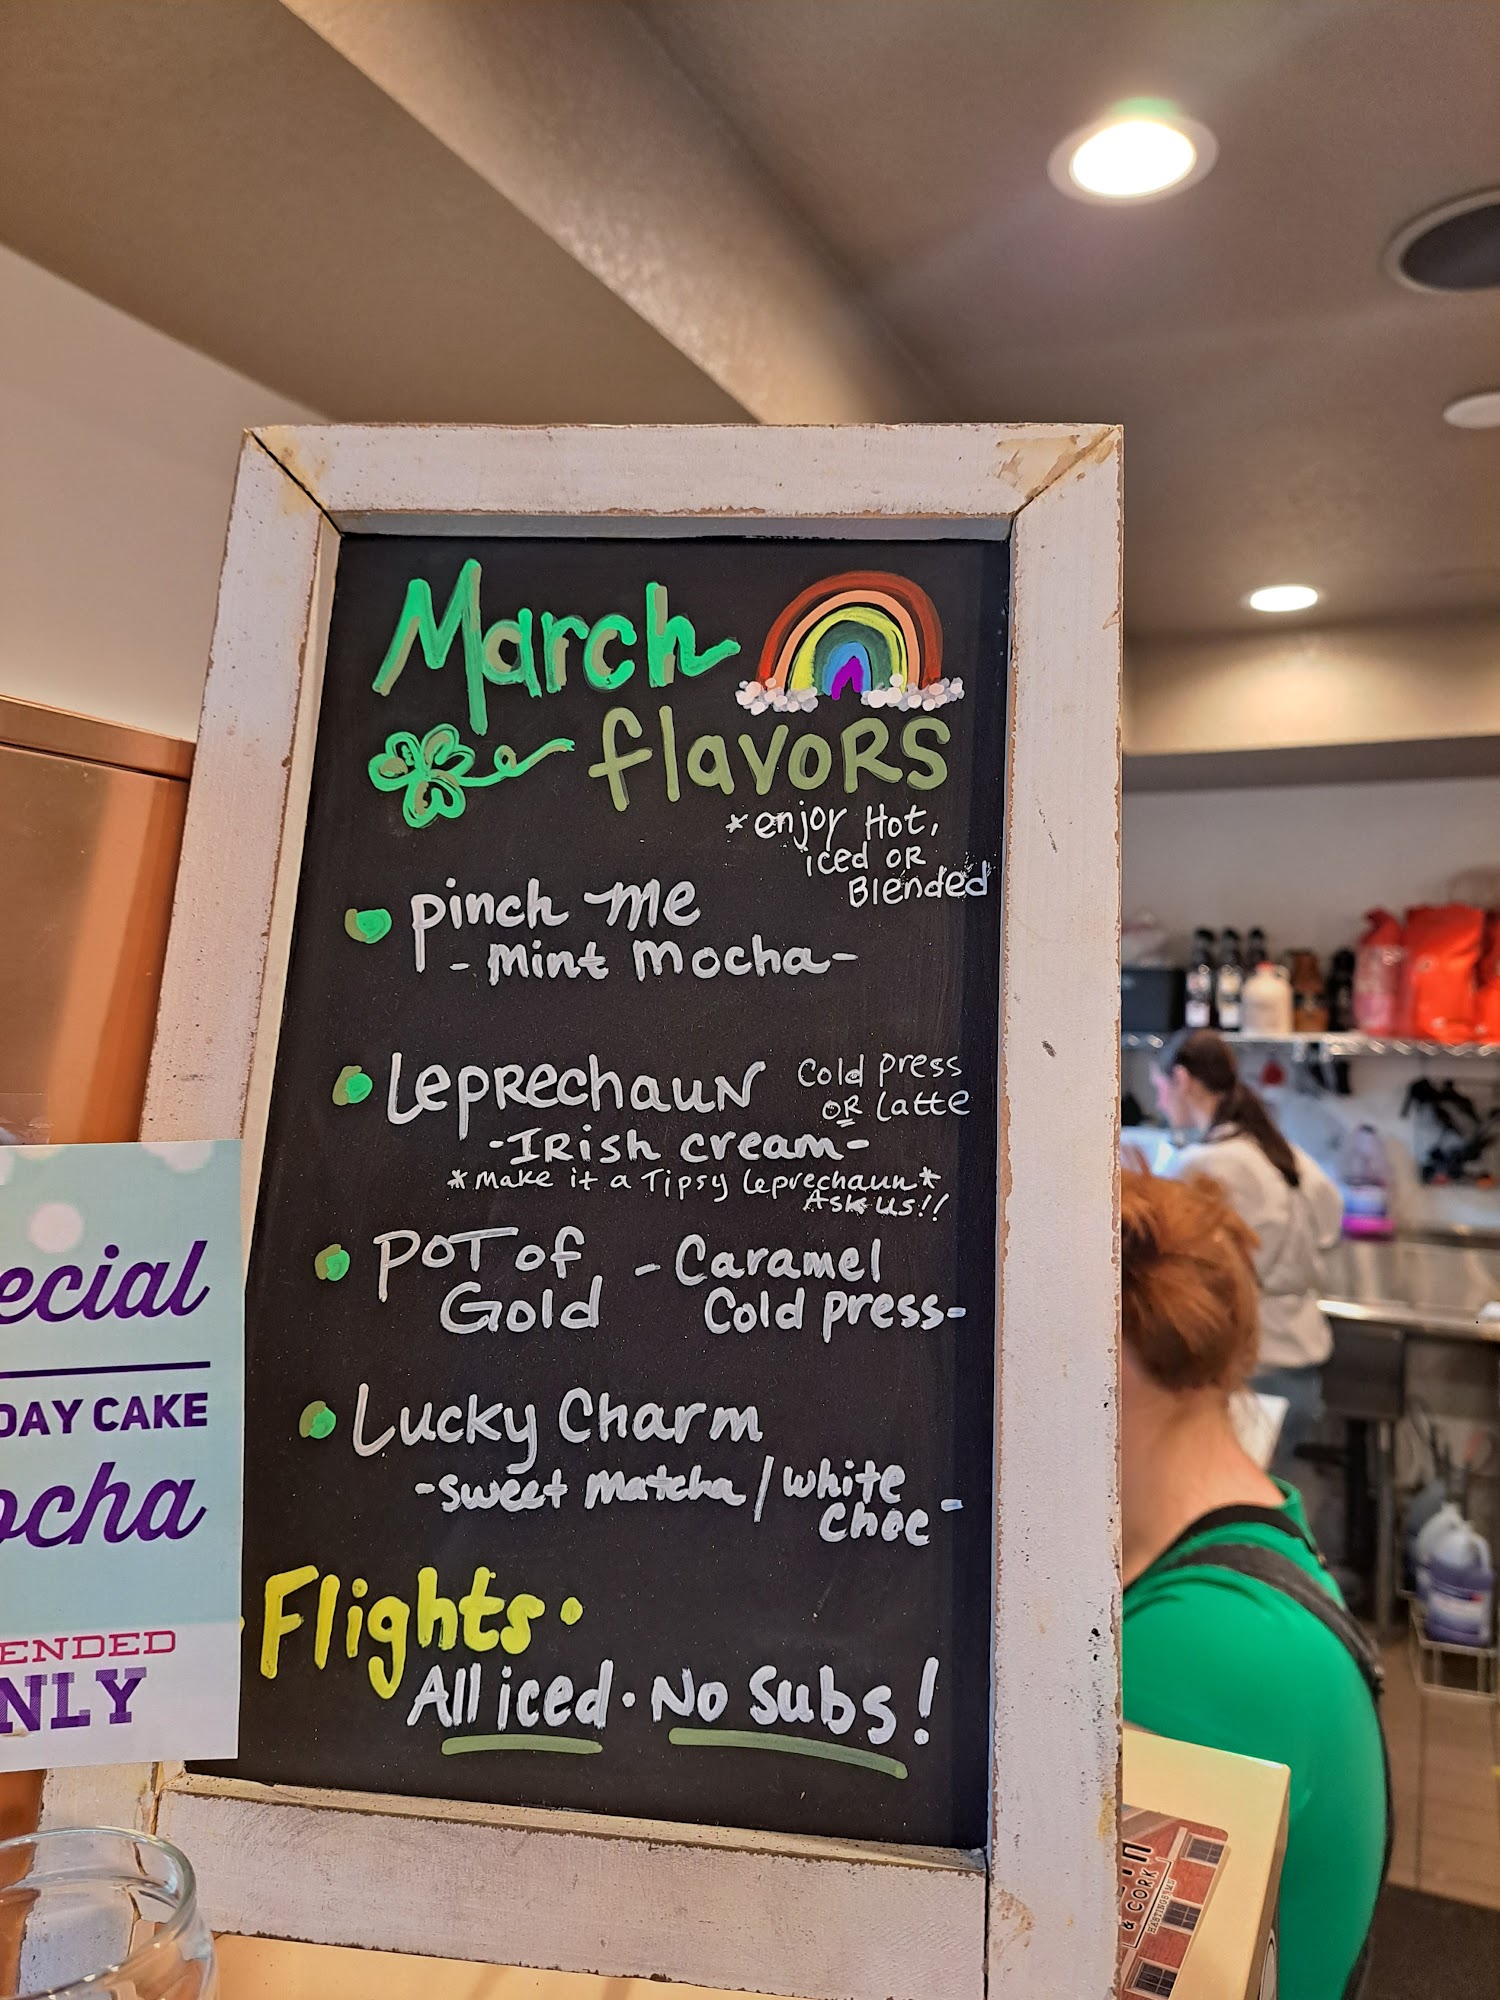 March
flavors
*enjoy Hot,
iced OR
Blended
Pinch Me
- Mint Mocha-
Leprechaun
Cold Press
OR Latte
-Irish Cream-
*Make it a Tipsy Leprechaun*
Ask us!!
POT of
Gold
- Caramel
Cold Press-
Lucky Charm
-Sweet Matcha / White
Choc-
·Flights·
All iced · No Subs!
ecial
DAY CAKE
ocha
ENDED
NLY
& CORK